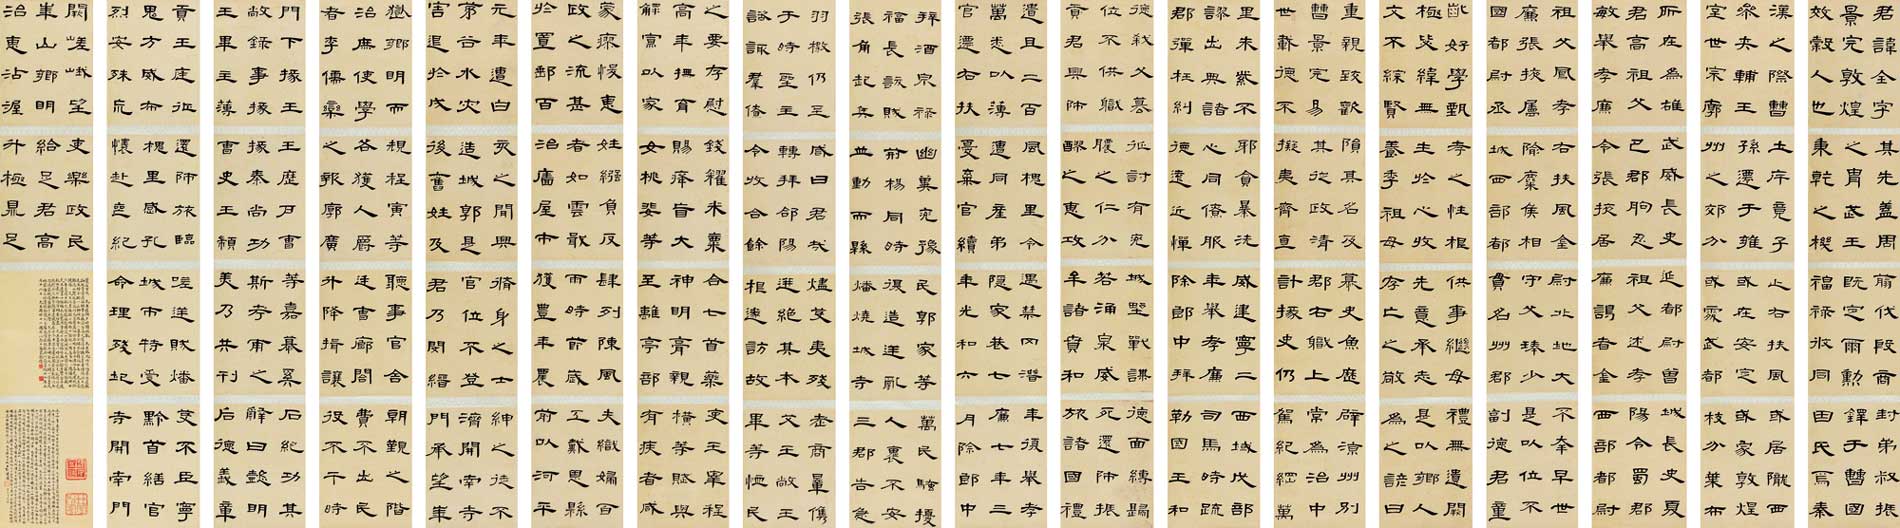 君諱全字
景完敦煌
效穀人也
其先盖周
之胄武王
秉乾之機
翦伐殷商
既定爾勳
福祿攸同
封弟叔振
鐸于曹國
因氏焉秦
漢之際曹
參夾輔王
室世宗廓
土斥竟子
孫遷于雍
州之郊分
止右扶風
或在安定
或處武都
或居隴西
或家敦煌
枝分葉布
所在為雄
君高祖父
敏舉孝廉
武威長史
巴郡朐忍
令張掖居
延都尉曾
祖父述孝
廉謁者金
城長史夏
陽令蜀郡
西部都尉
祖父鳳孝
廉張掖屬
國都尉丞
右扶風金
隃麋侯相
城西部都
尉北地大
守父琫少
貫名州郡
不幸早世
是以位不
副德君童
齔好學甄
極毖緯無
文不綜賢
孝之性根
生於心收
養季祖母
供事繼母
先意承志
存亡之敬
禮無遺闕
是以鄉人
為之諺曰
重親致歡
曹景完易
世載德不
隕其名及
其從政清
擬夷齊直
慕史魚歷
郡右職上
計掾史仍
辟涼州別
常為治中
駕紀綱萬
里朱紫不
謬出典諸
郡彈枉糾
邪貪暴洗
心同僚服
德遠近憚
威建寧二
年舉孝廉
除郎中拜
西域戊部
司馬時疏
勒國王和
德弒父篡
位不供職
貢君興師
征討有兗
膿之仁分
醪之惠攻
城堅戰謀
若涌泉威
牟諸賁和
德面縛歸
死還師振
旅諸國禮
遺且二百
萬悉以薄
官遷右扶
風槐里令
遭同產弟
憂棄官續
遇禁冈潛
隱家巷七
年光和六
年復舉孝
廉七年三
月除郎中
拜酒泉祿
福長訞賊
張角起兵
幽冀兗豫
荊楊同時
並動而縣
民郭家等
復造逆亂
燔燒城寺
萬民騷擾
人裏不安
三郡告急
羽檄仍至
于時聖主
諮諏羣僚
咸曰君哉
轉拜郃陽
令收合餘
燼芟夷殘
迸絕其本
根遂訪故
老商量儁
艾王敞王
畢等恤民
之要存慰
高年撫育
鰥寡以家
錢糴米粟
賜癃盲大
女桃婓等
合七首藥
神明膏親
至離亭部
吏王皋程
橫等賦與
有疾者咸
蒙瘳悛惠
政之流甚
於置郵百
姓繦負反
者如雲戢
治廧屋市
肆列陳風
雨時節歲
獲豐年農
夫織婦百
工戴恩縣
前以河平
元年遭白
茅谷水災
害退於戌
亥之間興
造城郭是
後舊姓及
脩身之士
官位不登
君乃閔縉
紳之徒不
濟開南寺
門承望華
嶽鄉明而
治庶使學
者李儒欒
規程寅等
各獲人爵
之報廓廣
聽事官舍
廷曹廊閣
升降揖讓
朝覲之階
費不出民
役不干時
門下掾王
敞錄事掾
王畢主薄
王歷戶曹
掾秦尚功
曹史王顓
等嘉慕奚
斯考甫之
美乃共刊
石紀功其
辭曰懿明
后德義章
貢王庭征
鬼方威布
烈安殊荒
還師旅臨
槐里感孔
懷赴喪紀
嗟逆賊燔
城市特受
命理殘圮
芟不臣寧
黔首繕官
寺開南門
闕嵯峨望
華山鄉明
治惠沾渥
吏樂政民
給足君高
升極鼎足